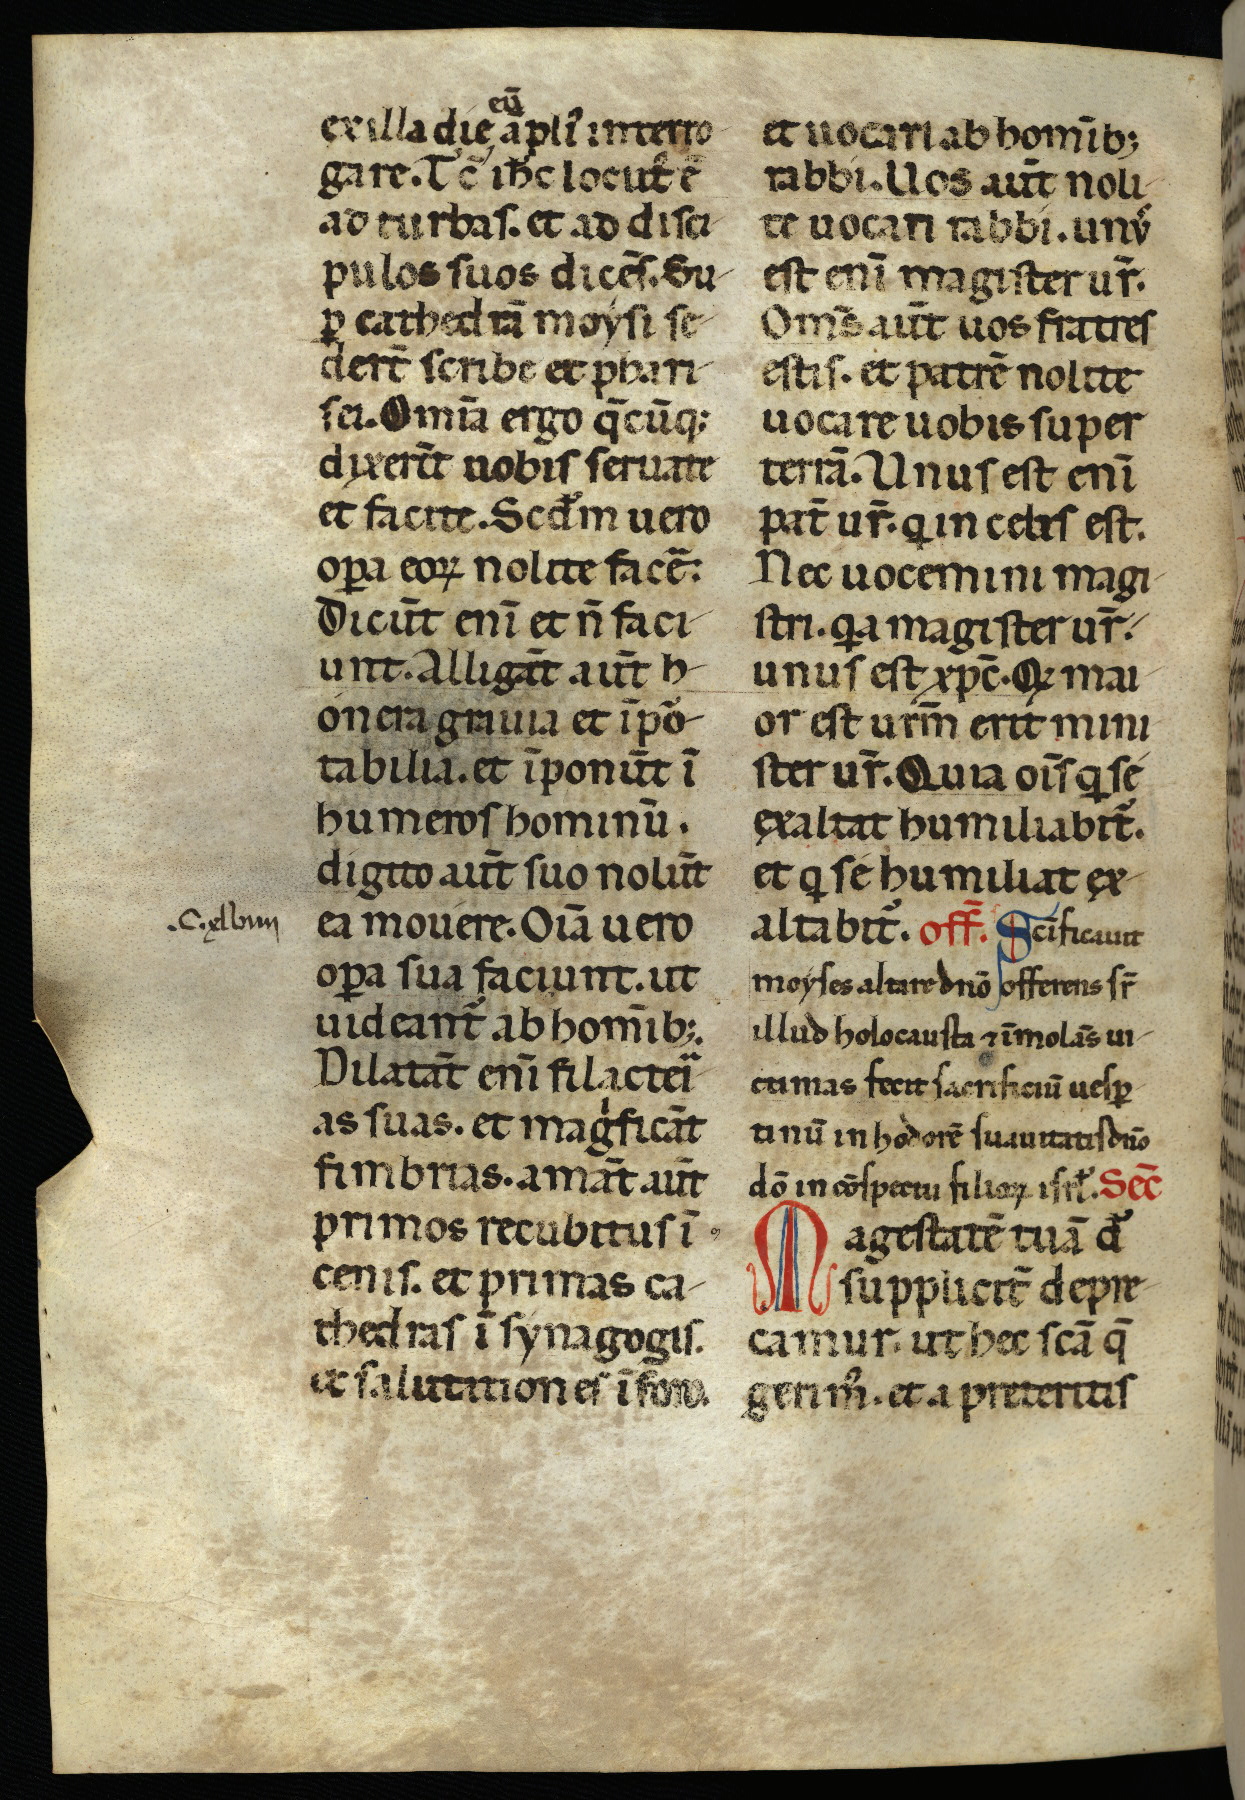 eū
ex illa die āpli᷒ interro
gare. Tc̄ ih̄c locut᷒ ē
ad turbas. et ad disci
pulos suos dicēs. Su
ꝑ cathedrā moysi se
derūt scribe et phari
sei. Omīa ergo q̄cūq;
dixerīt uobis seruate
et facite. Scdm̄ uero
oꝑa eoꝝ nolite facē:
Dicūt enī et n̄ faci
unt. Alligāt aūt h
onera grauia et īpo
tabilia. et īponūt ī
humeros hominū.
digito aūt suo nolūt
.C.xlviiii
ea mouere. Oīa uero
oꝑa sua faciunt. ut
uideant᷒ ab homīb;.
Dilatāt enī filacteri
as suas. et magͥficāt
fimbrias. amāt aūt
primos recubitus ī
cenis. et primas ca
thedras ī synagogis.
et salutitiones ī foro.
et uocari ab homīb;
rabbi. Uos aūt noli
te uocari rabbi. unꝰ
est enī magister ur̄.
Om̄s aūt uos fratres
estis. et patrē nolite
uocare uobis super
terrā. Unus est enī
pat̄ ur̄. ꝗ in celis est.
Nec uocemini magi
stri. ꝗa magister ur̄.
unus est xp̄c. Qͥ mai
or est urm̄ erit mini
ster ur̄. Quia oīs ꝗ se
exaltat humiliabit᷒.
et ꝗ se humiliat ex
altabit᷒. off̄. Scīficauit
moyses altare dnō offerens sr̄
illud holocausta ⁊ īmolās ui
ctimas fecit sacrificiū uesꝑ
tinū in hodorē suauitatis dnō
dō in cōspectu filioꝝ isrl᷒. Sēc
Magestatē tuā d᷒
suppliciт̄ depre
camur. ut hec scā q̄
gerim᷒. et a preteritis